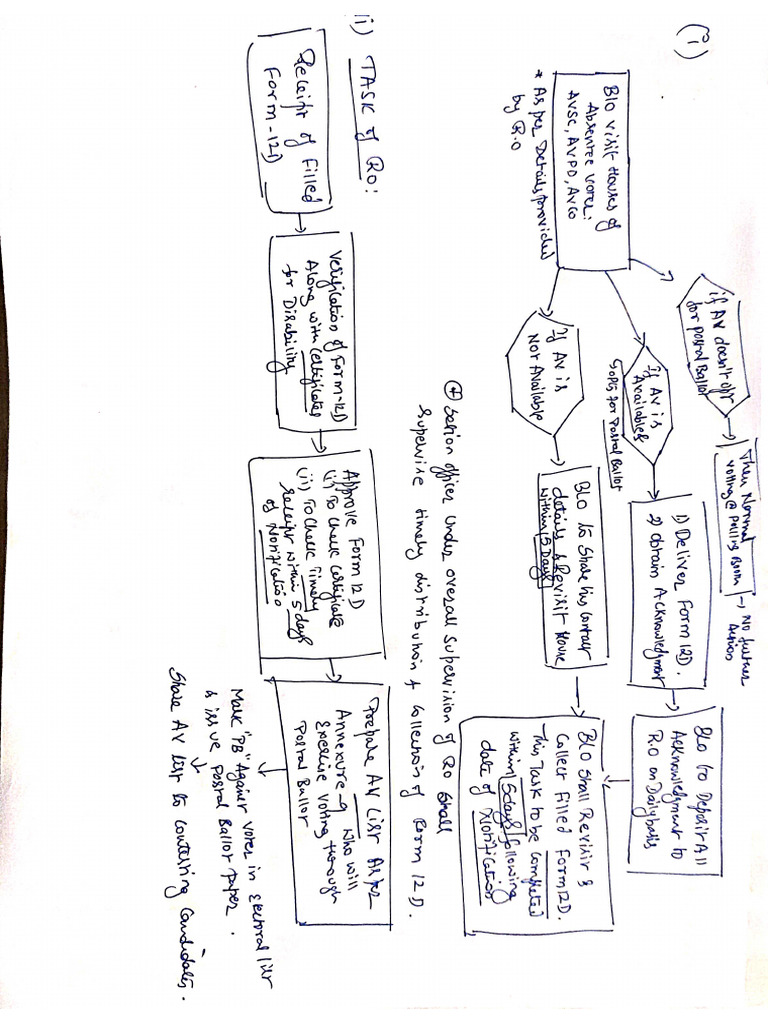 (i)
BLO visit Houses of
Absentee Voter:
AVSC, AVPD, AVCO
* As per Details provided
by R.O
if AV doesn't opt
for postal Ballot
Then Normal
voting @ polling Booth
→ No further
Action
if AV is
Available &
opts for Postal Ballot
1) Deliver Form 12D.
2) Obtain Acknowledgment
BLO to Deposit All
Acknowledgment to
R.O on Daily basis
If AV is
Not Available
BLO to Share his contact
details & Revisit House
within 5 Days
BLO shall Revisit &
Collect Filled Form 12D.
This Task to be completed
within 5 days following
date of Notification
(+) Section officer under overall supervision of RO shall
supervise timely distribution & Collection of Form 12D.
(ii) TASK of RO:
Receipt of Filled
Form-12D
Verification of Form-12D
Along with Certificates
for Disability
Approve Form 12D
(i) To Check Certificate
(ii) To Check Timely
Receipt within 5 days
of Notification
Prepare AV List As per
Annexure-9 who will
Exercise Voting through
Postal Ballot
Mark "PB" Against Voter in Electoral list
& issue Postal Ballot Paper.
Share AV list to Contesting Candidates.